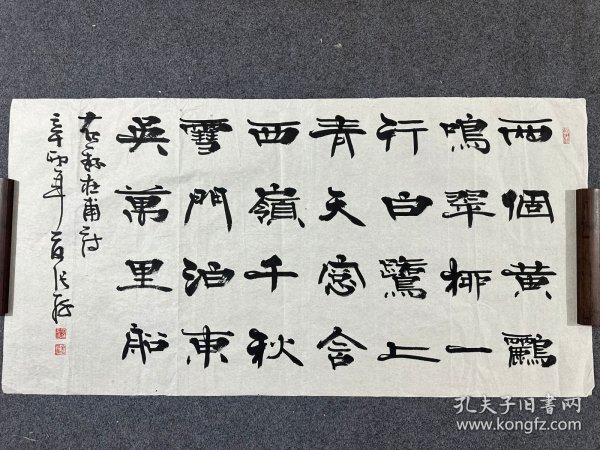 两個黄鸝
鳴翠柳一
行白鷺上
青天窗含
西嶺千秋
雪門泊東
吴萬里船
杜甫诗
辛卯年
孔夫子旧书网
www.kongfz.com